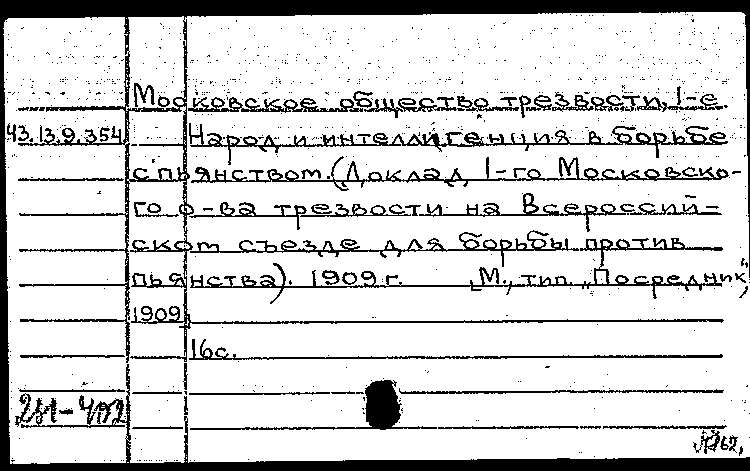 Московское общество трезвости, 1-е
43.13.9.354 Народ и интеллигенция в борьбе
с пьянством. (Доклад 1-го Московско-
го о-ва трезвости на Всероссий-
ском съезде для борьбы против
пьянства). 1909 г. [М., тип. „Посредник“,
1909]
16 с.
251-402